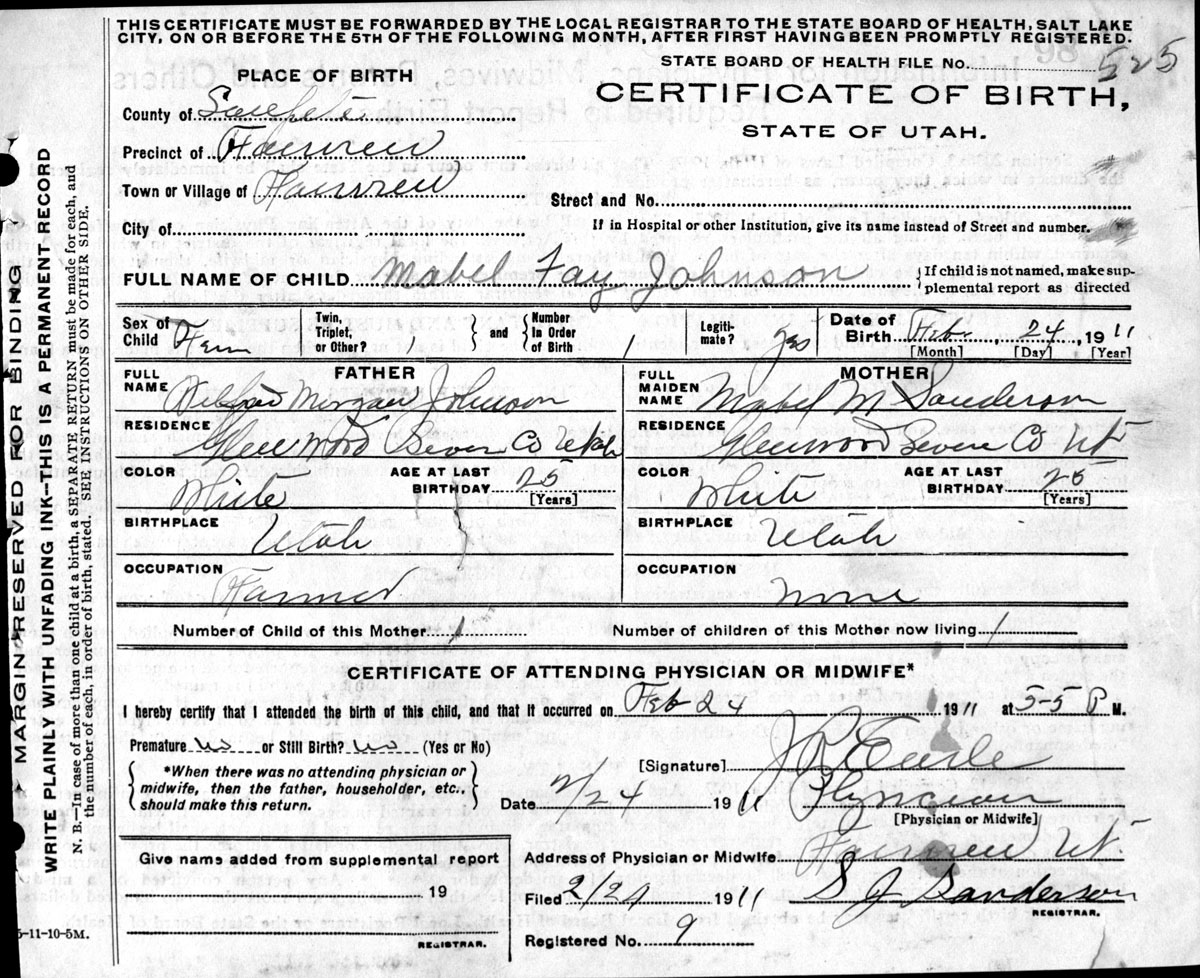 THIS CERTIFICATE MUST BE FORWARDED BY THE LOCAL REGISTRAR TO THE STATE BOARD OF HEALTH, SALT LAKE
CITY, ON OR BEFORE THE 5TH OF THE FOLLOWING MONTH, AFTER FIRST HAVING BEEN PROMPTLY REGISTERED.
STATE BOARD OF HEALTH FILE No. 525
PLACE OF BIRTH
CERTIFICATE OF BIRTH,
STATE OF UTAH.
County of Sanpete
Precinct of Fairview
Town or Village of Fairview
Street and No.
City of
If in Hospital or other Institution, give its name instead of Street and number.
FULL NAME OF CHILD Mabel Fay Johnson
{ If child is not named, make sup-
plemental report as directed
Sex of Child Fem
Twin, Triplet, or Other? 1 } and { Number in Order of Birth 1
Legiti-mate? Yes
Date of Birth Feb. 24, 1911
[Month] [Day] [Year]
FATHER
FULL NAME Morgan Johnson
RESIDENCE Glenwood Sevier Co Utah
COLOR White
AGE AT LAST BIRTHDAY 25
[Years]
BIRTHPLACE Utah
OCCUPATION Farmer
MOTHER
FULL MAIDEN NAME Mabel M Sanderson
RESIDENCE Glenwood Sevier Co Ut
COLOR White
AGE AT LAST BIRTHDAY 25
[Years]
BIRTHPLACE Utah
OCCUPATION None
Number of Child of this Mother 1
Number of children of this Mother now living 1
CERTIFICATE OF ATTENDING PHYSICIAN OR MIDWIFE*
I hereby certify that I attended the birth of this child, and that it occurred on Feb 24 1911 at 5-5 P M.
Premature no or Still Birth? no (Yes or No)
{ *When there was no attending physician or
midwife, then the father, householder, etc.,
should make this return. }
[Signature] Earle
Date 2/24 1911 Physician
[Physician or Midwife]
Address of Physician or Midwife Fairview Ut.
Give name added from supplemental report
19
REGISTRAR.
Filed 2/29 1911 Sanderson
REGISTRAR.
Registered No. 9
5-11-10-5M.
MARGIN RESERVED FOR BINDING
WRITE PLAINLY WITH UNFADING INK—THIS IS A PERMANENT RECORD
N. B.—In case of more than one child at a birth, a SEPARATE RETURN must be made for each, and
the number of each, in order of birth, stated. SEE INSTRUCTIONS ON OTHER SIDE.